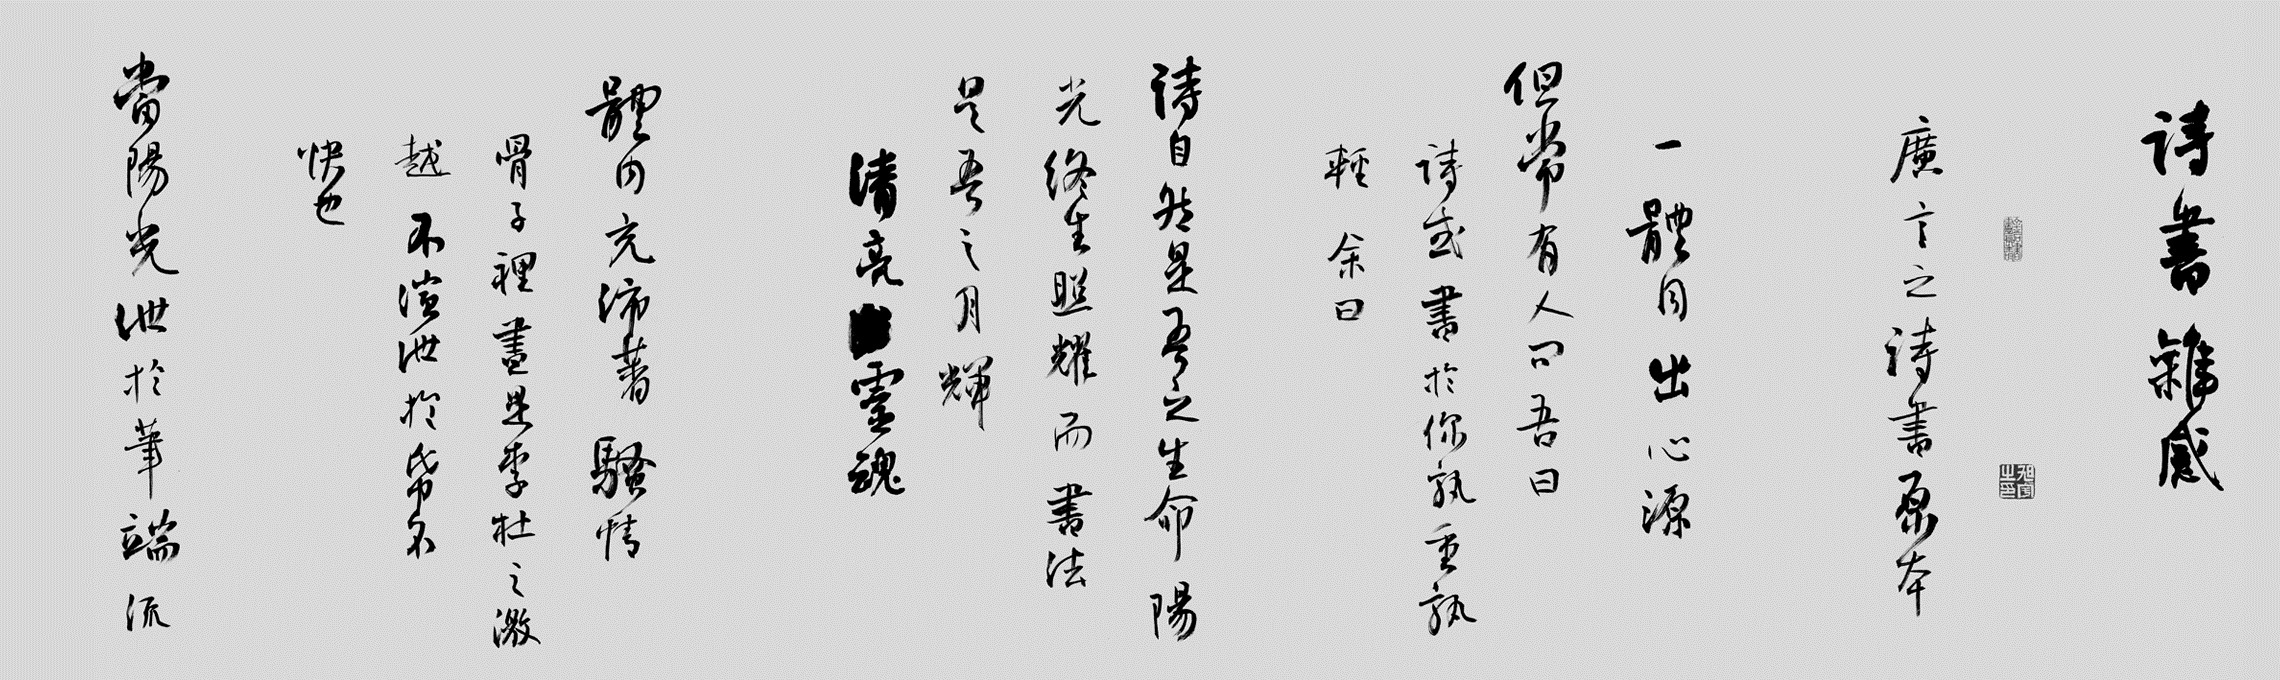 詩書雜感
廣言之詩書原本
一體同出心源
但常有人問吾曰
詩或書於你孰重孰
輕 余曰
詩自然是吾之生命陽
光終生照耀而書法
是吾之月輝
清亮靈魂
體内充沛著騷情
骨子裡盡是李杜之激
越 不渲泄於帛不
快也
當陽光泄於筆端流